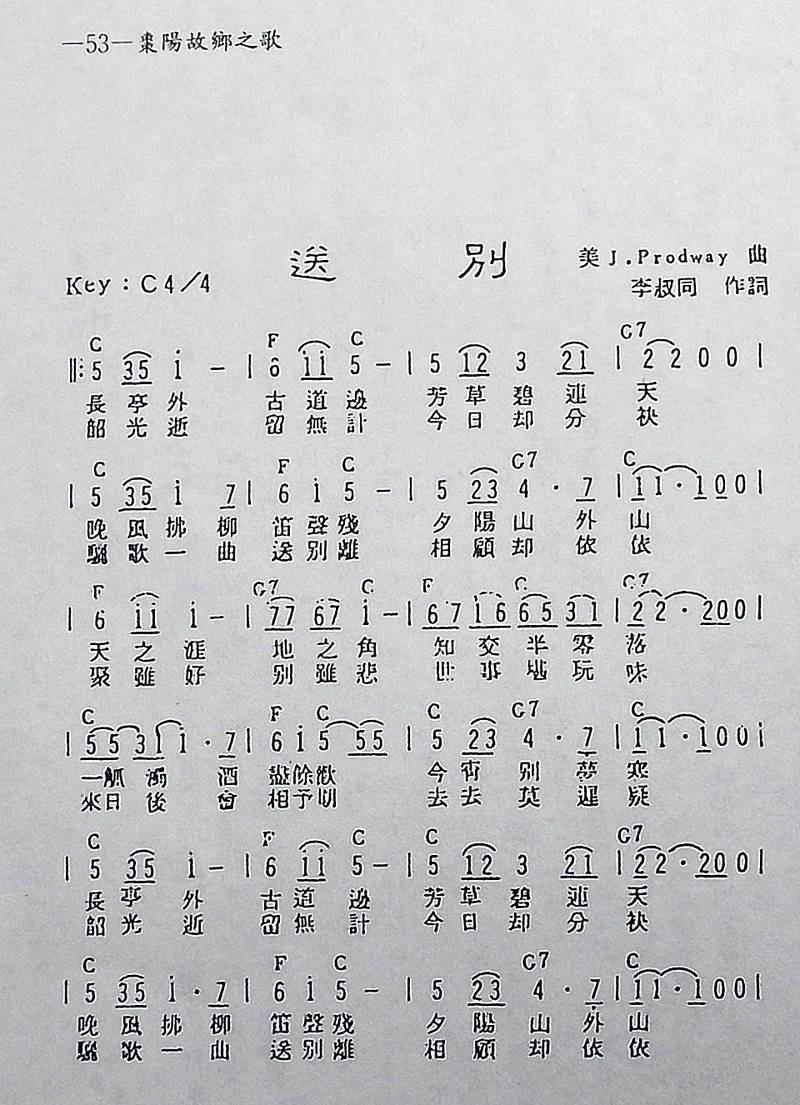 —53—棗陽故鄉之歌
送 別
美 J.Prodway 曲
Key：C 4／4
李叔同 作詞
C F C G7
‖: 5 3 5 i － | 6 i i 5 － | 5 1 2 3 2 1 | 2 2 0 0 |
長 亭 外 古 道 邊 芳 草 碧 連 天
韶 光 逝 留 無 計 今 日 却 分 袂
C F C G7 C
| 5 3 5 i 7 | 6 i 5 － | 5 2 3 4 · 7 | 1 1 · 1 0 0 |
晚 風 拂 柳 笛 聲 殘 夕 陽 山 外 山
驪 歌 一 曲 送 別 離 相 顧 却 依 依
F G7 C F C G7
| 6 i i i － | 7 7 6 7 i － | 6 7 i 6 6 5 3 1 | 2 2 · 2 0 0 |
天 之 涯 地 之 角 知 交 半 零 落
聚 雖 好 別 雖 悲 世 事 堪 玩 味
C F C C G7 C
| 5 5 3 1 i · 7 | 6 i 5 5 5 | 5 2 3 4 · 7 | 1 1 · 1 0 0 i
一 觚 濁 酒 盡 餘 歡 今 宵 別 夢 寒
來 日 後 會 相 予 期 去 去 莫 遲 疑
C F C C G7
| 5 3 5 i － | 6 i i 5 － | 5 1 2 3 2 1 | 2 2 · 2 0 0 |
長 亭 外 古 道 邊 芳 草 碧 連 天
韶 光 逝 留 無 計 今 日 却 分 袂
C F C G7 C
| 5 3 5 i · 7 | 6 i 5 － | 5 2 3 4 · 7 | 1 1 · 1 0 0 |
晚 風 拂 柳 笛 聲 殘 夕 陽 山 外 山
驪 歌 一 曲 送 別 離 相 顧 却 依 依